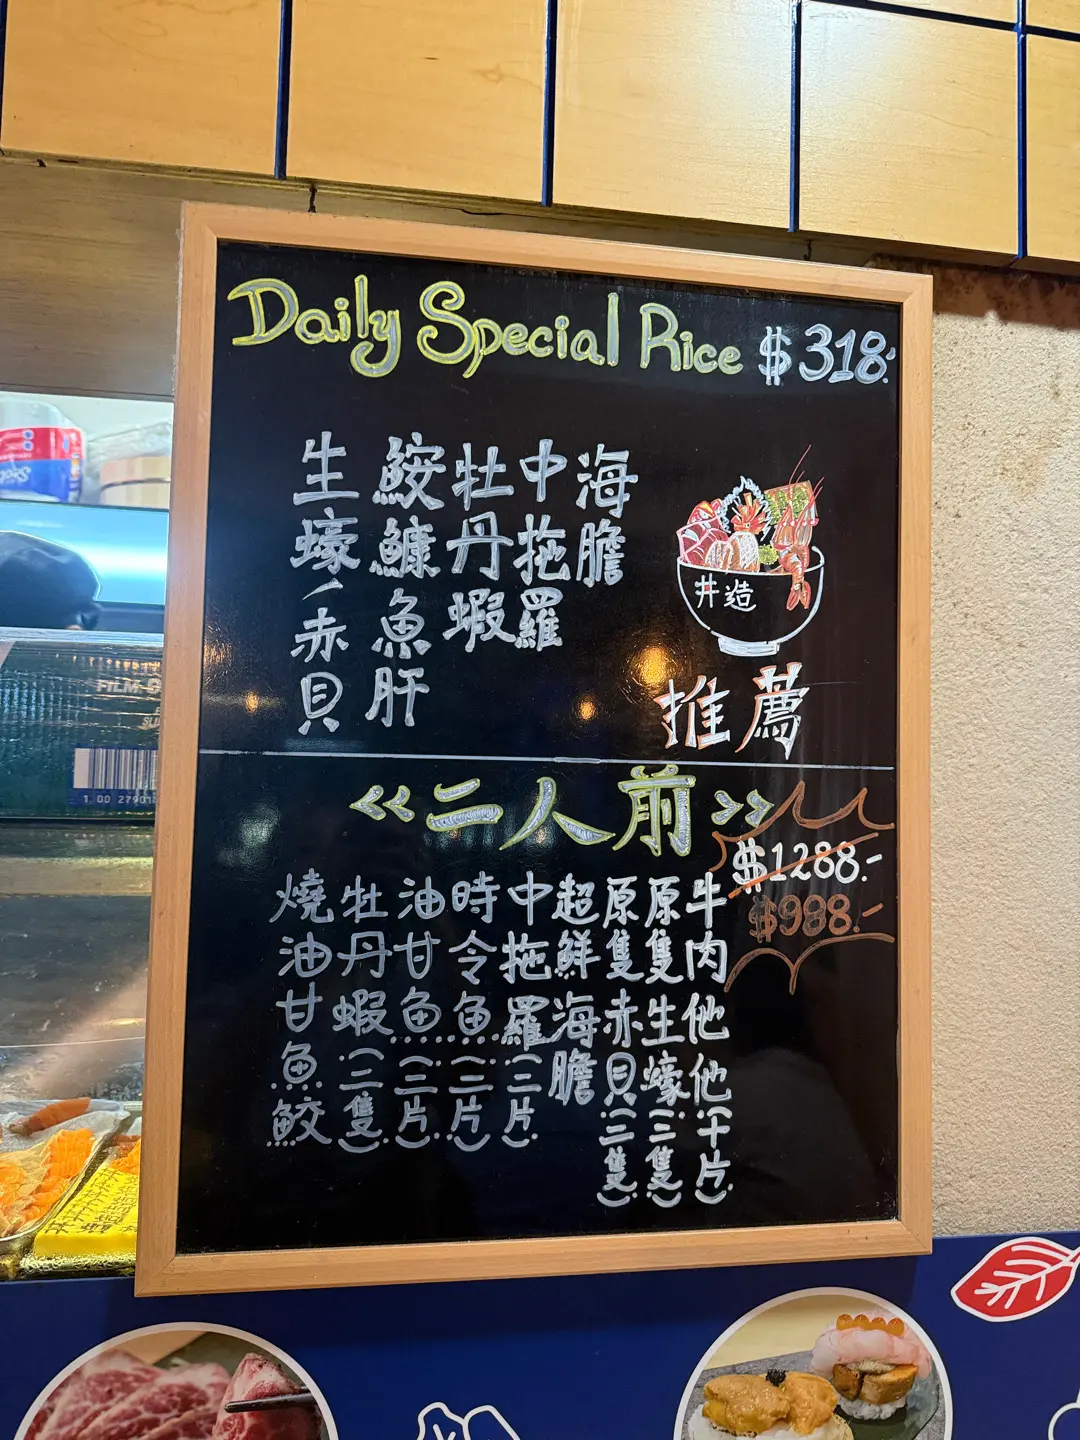 Daily Special Rice $318.-
海膽
中拖羅
牡丹蝦
鮟鱇魚肝
生蠔、赤貝
丼造
推薦
<<二人前>>
$1288.-
$988.-
牛肉他他(十片)
原隻生蠔(二隻)
原隻赤貝(二隻)
超鮮海膽
中拖羅(二片)
時令魚(二片)
油甘魚(二片)
牡丹蝦(二隻)
燒油甘魚鮫
1 00 2790